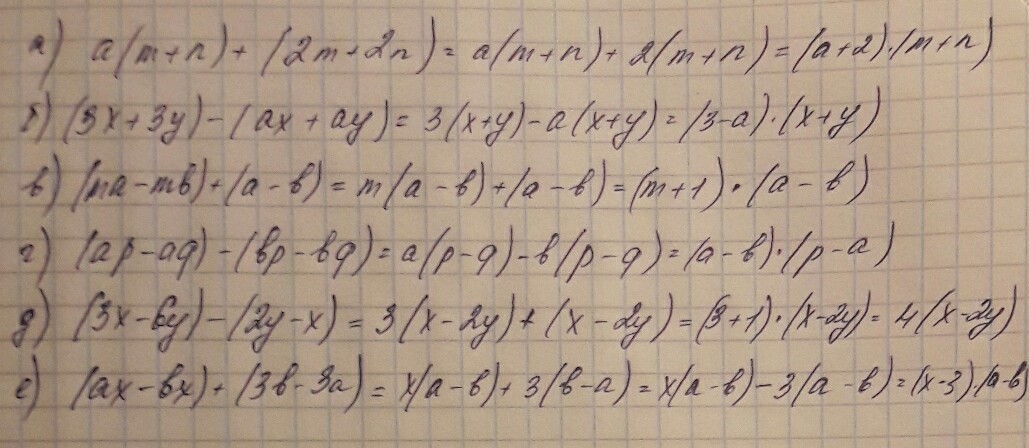 а) a(m+n)+(2m+2n)=a(m+n)+2(m+n)=(a+2)·(m+n)
б) (3x+3y)-(ax+ay)=3(x+y)-a(x+y)=(3-a)·(x+y)
в) (ma-mb)+(a-b)=m(a-b)+(a-b)=(m+1)·(a-b)
г) (ap-aq)-(bp-bq)=a(p-q)-b(p-q)=(a-b)·(p-a)
д) (3x-6y)-(2y-x)=3(x-2y)+(x-2y)=(3+1)·(x-2y)=4(x-2y)
е) (ax-bx)+(3b-3a)=x(a-b)+3(b-a)=x(a-b)-3(a-b)=(x-3)·(a-b)